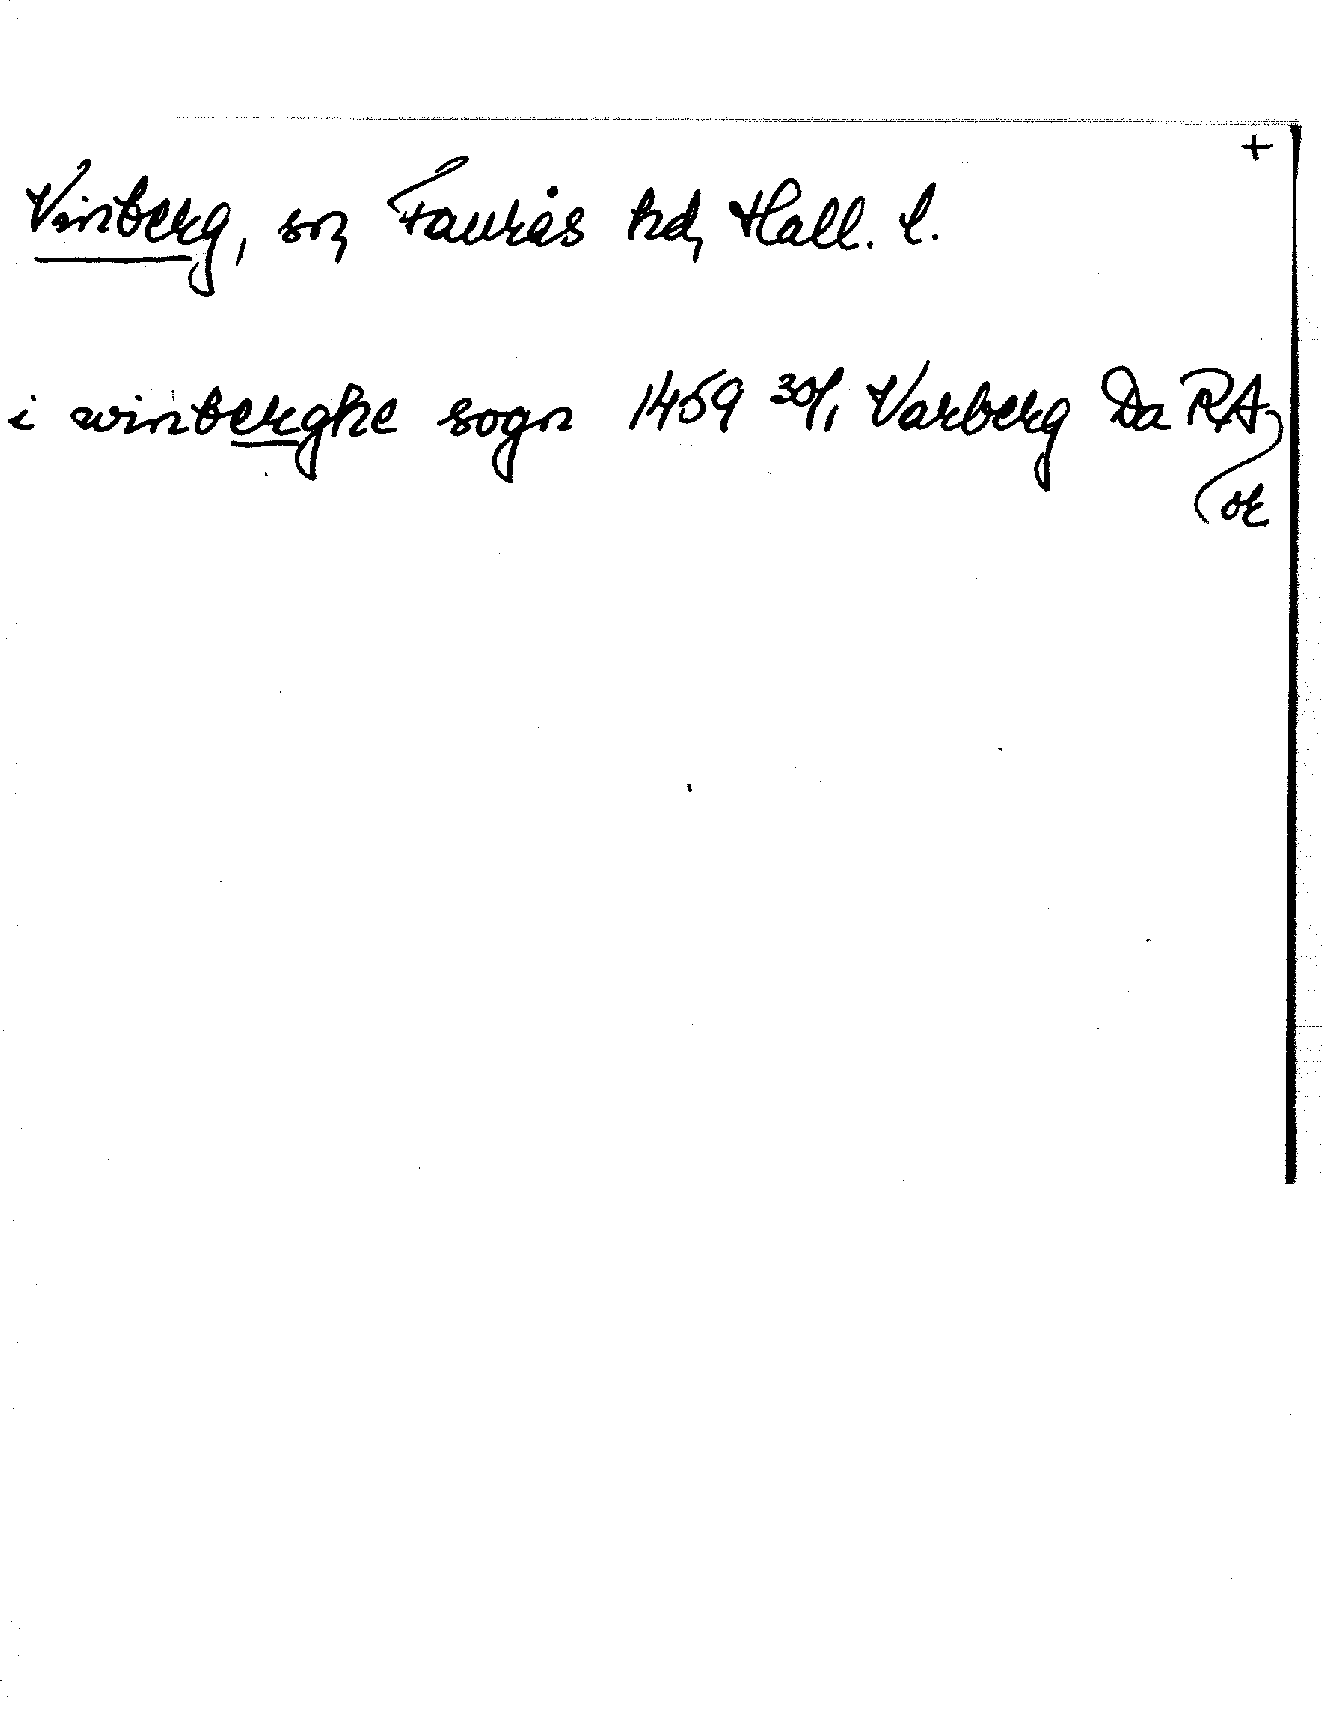 +
Vinberg, sn, Faurås hd, Hall. l.
i winberghe sogn 1459 30/1 Varberg Da RA,
or